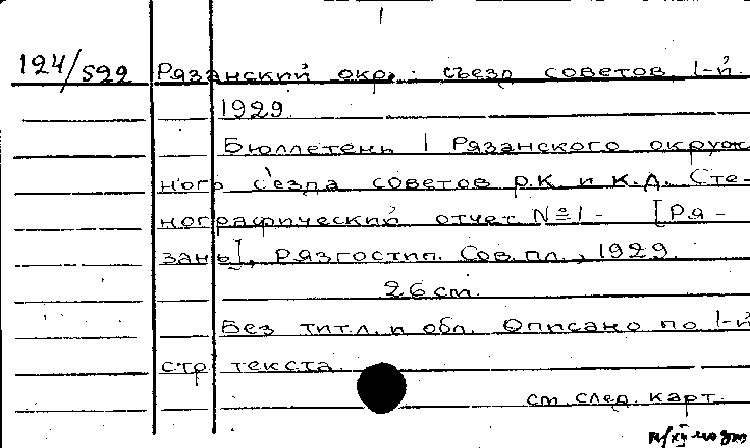 1
124/522 Рязанский окр. съезд советов 1-й.
1929.
Бюллетень 1 Рязанского окруж-
ного с'езда советов р.к. и к.д. Сте-
нографический отчет №1- [Ря-
зань], Рязгостип. Сов. пл., 1929.
26 cm.
Без тит. л. и обл. Описано по 1-й
стр. текста.
см. след. карт.